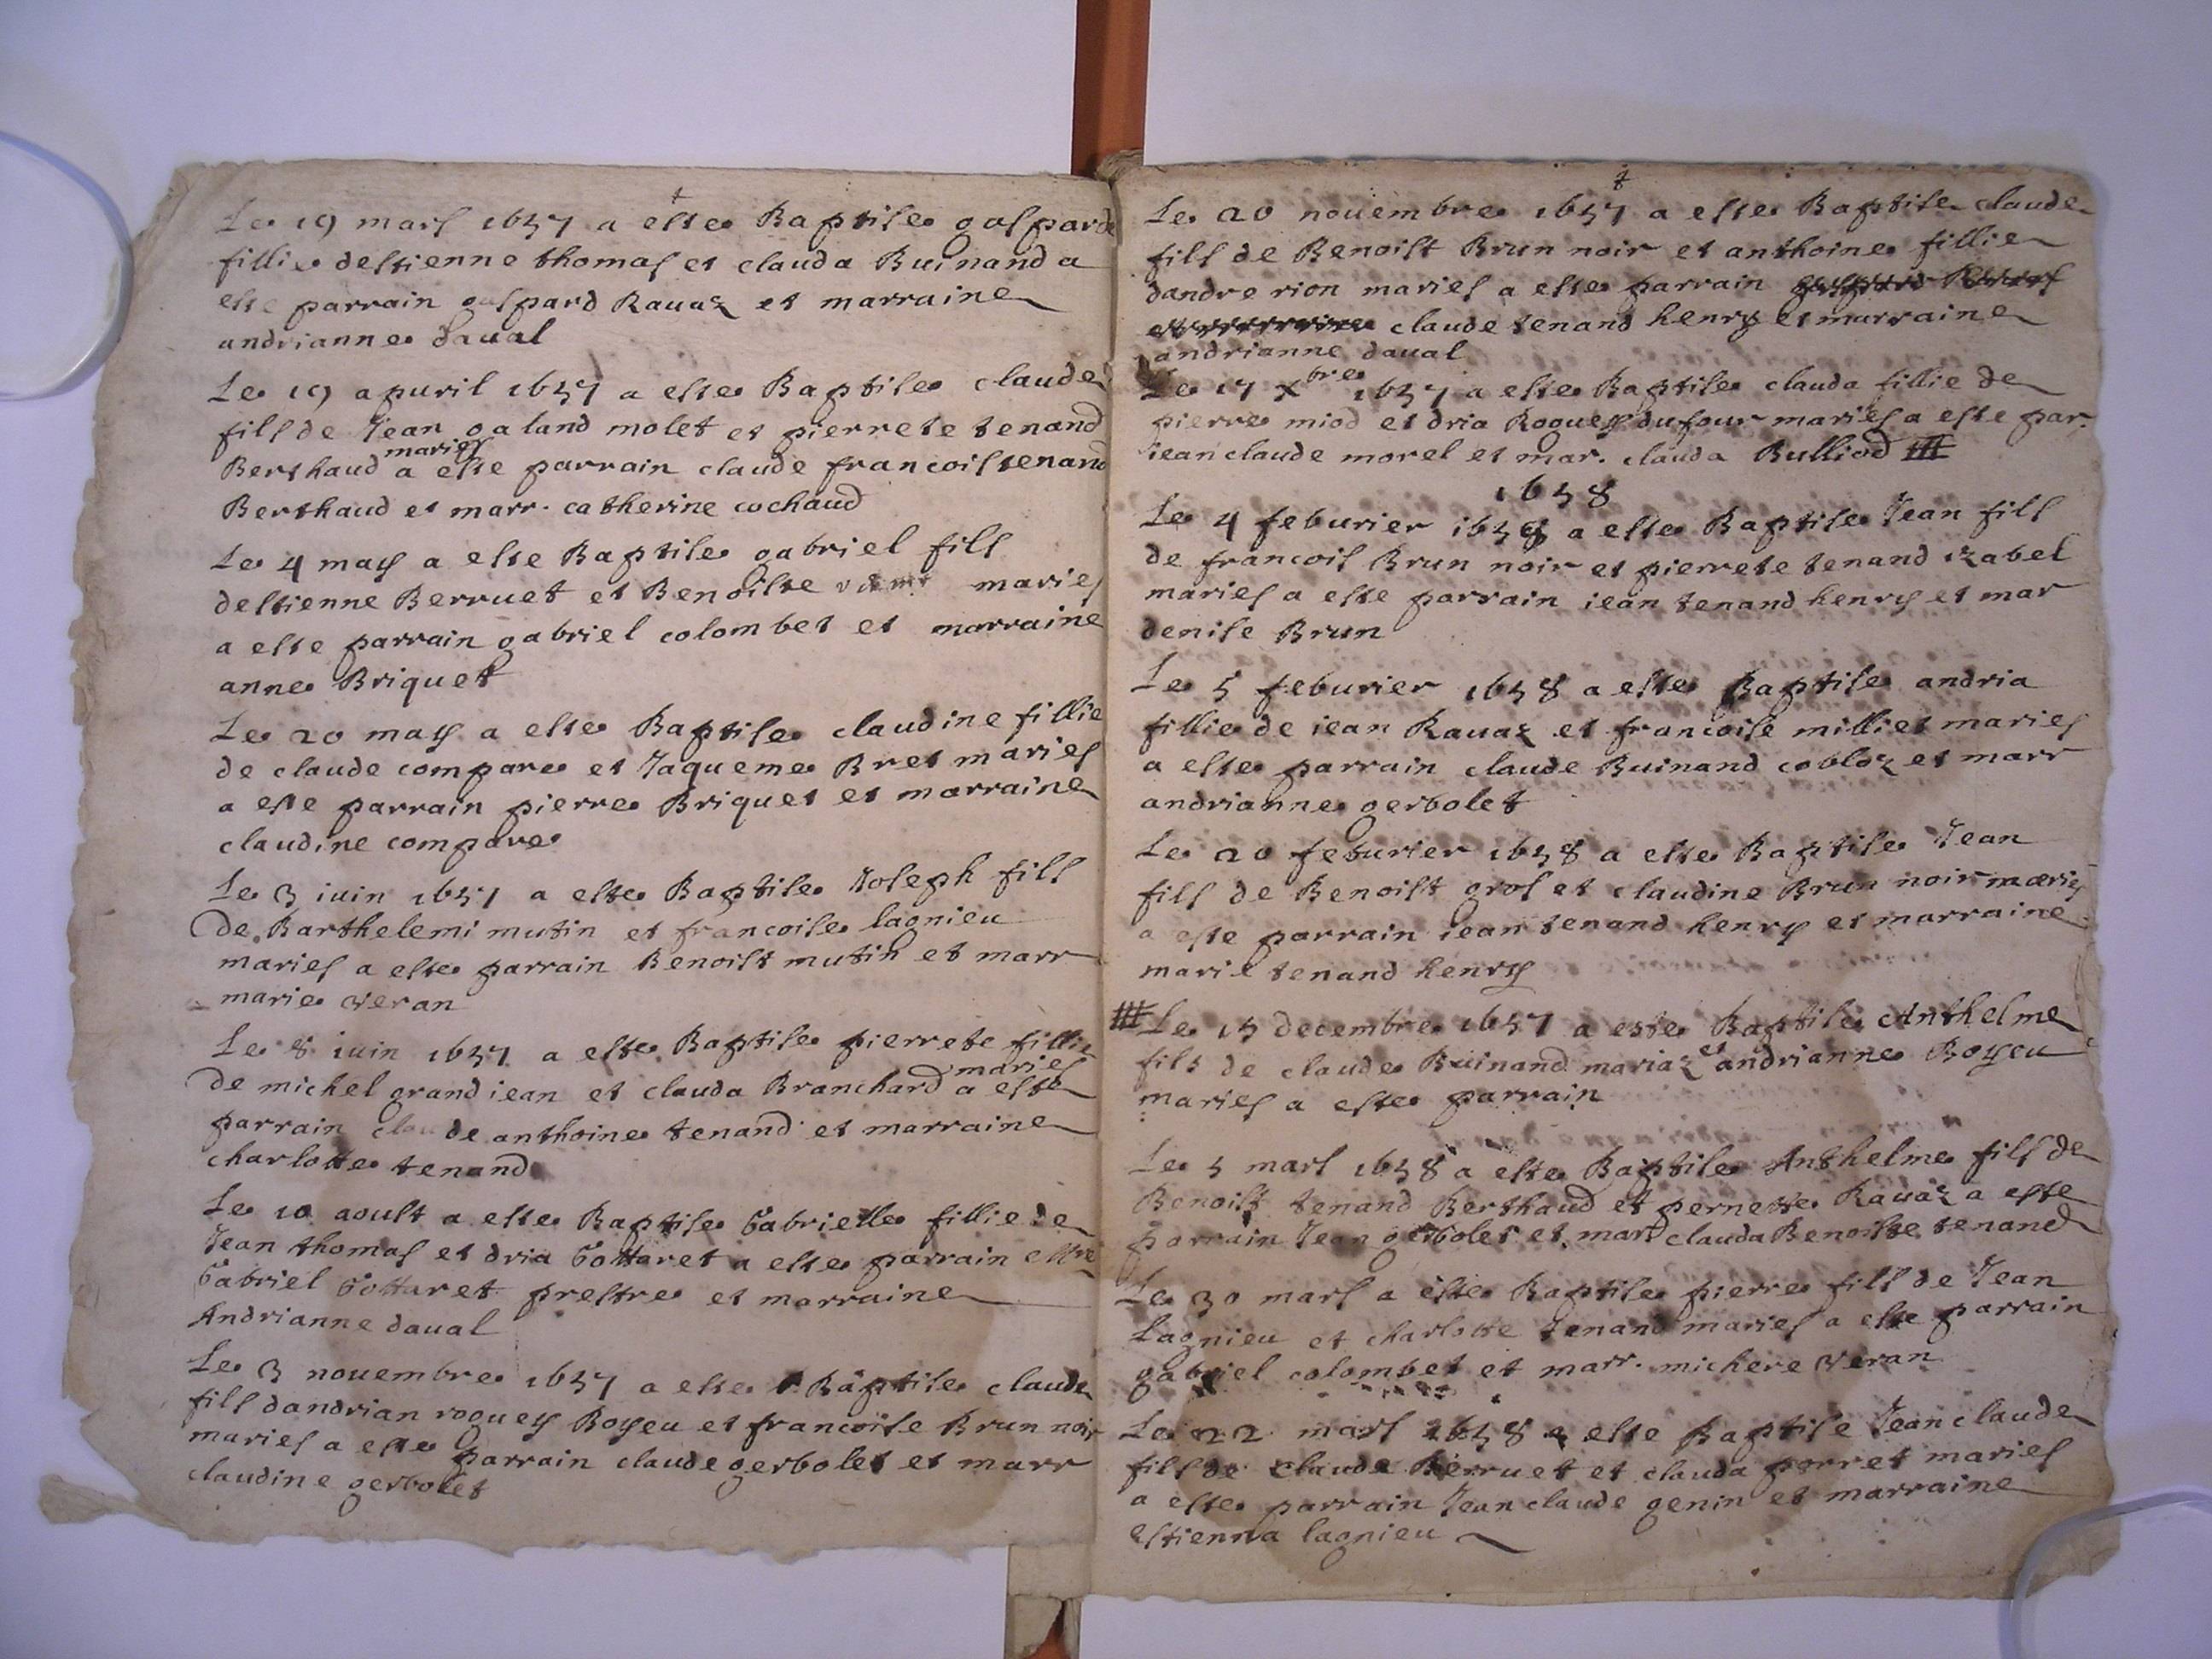 Le 19 mars 1657 a este Baptise gasparde
fillie destienne thomas et clauda Buinand a
este parrain gaspard Rauaz et marraine
andrianne daual
Le 19 apuril 1657 a este Baptise claude
fils de Jean galand molet et pierrete tenand
Berthaud maries a este parrain claude francois tenand
Berthaud et marr. catherine cochaud
Le 4 may a este Baptise gabriel fils
destienne Berruet et Benoiste maries
a este parrain gabriel colombet et marraine
anne Briquet
Le 20 may a este Baptise claudine fillie
de claude compare et Jaqueme Bret maries
a este parrain pierre Briquet et marraine
claudine compare
Le 3 iuin 1657 a este Baptise Joseph fils
de Barthelemi mutin et francoise lagnieu
maries a este parrain Benoist mutin et marr
marie veran
Le 8 iuin 1657 a este Baptise pierrete fillie
de michel grand iean et clauda Branchard maries a este
parrain claude anthoine tenand et marraine
charlotte tenand
Le 10 aoust a este Baptise Gabrielle fillie de
Jean thomas et dria Gottaret a este parrain Mre
Gabriel Gottaret prestre et marraine
Andrianne daual
Le 3 nouembre 1657 a este Baptise claude
fils dandrian roguey Boyeu et francoise Brun noir
maries a este parrain claude gerbolet et marr
claudine gerbolet
Le 20 nouembre 1657 a este Baptise claude
fils de Benoist Brun noir et anthoine fillie
dandre rion maries a este parrain
claude tenand henry et marraine
andrianne daual
Le 17 Xbre 1657 a este Baptise clauda fillie de
pierre miod et dria Roguey dufour maries a este par.
iean claude morel et mar. clauda Bulliod
1658
Le 4 feburier 1658 a este Baptise Jean fils
de francois Brun noir et pierrete tenand izabel
maries a este parrain iean tenand henry et mar
denise Brun
Le 5 feburier 1658 a este Baptise andria
fillie de iean Rauaz et francoise milliet maries
a este parrain claude Buinand cobloz et marr
andrianne gerbolet
Le 20 feburier 1658 a este Baptise Jean
fils de Benoist gros et claudine Brun noir maries
a este parrain iean tenand henry et marraine
marie tenand henry
Le 15 decembre 1657 a este Baptise Anthelme
fils de claude Buinand mariaz et andrianne Boyeu
maries a este parrain
Le 5 mars 1658 a este Baptise Anthelme fils de
Benoist tenand Berthaud et pernette Rauaz a este
parrain Jean gerbolet et marr clauda Benoiste tenand
Le 30 mars a este Baptise pierre fils de Jean
Lagnieu et charlotte tenand maries a este parrain
gabriel colombet et marr. michere veran
Le 22 mars 1658 a este Baptise Jean claude
fils de claude Berruet et clauda porret maries
a este parrain Jean claude genin et marraine
estienna lagnieu